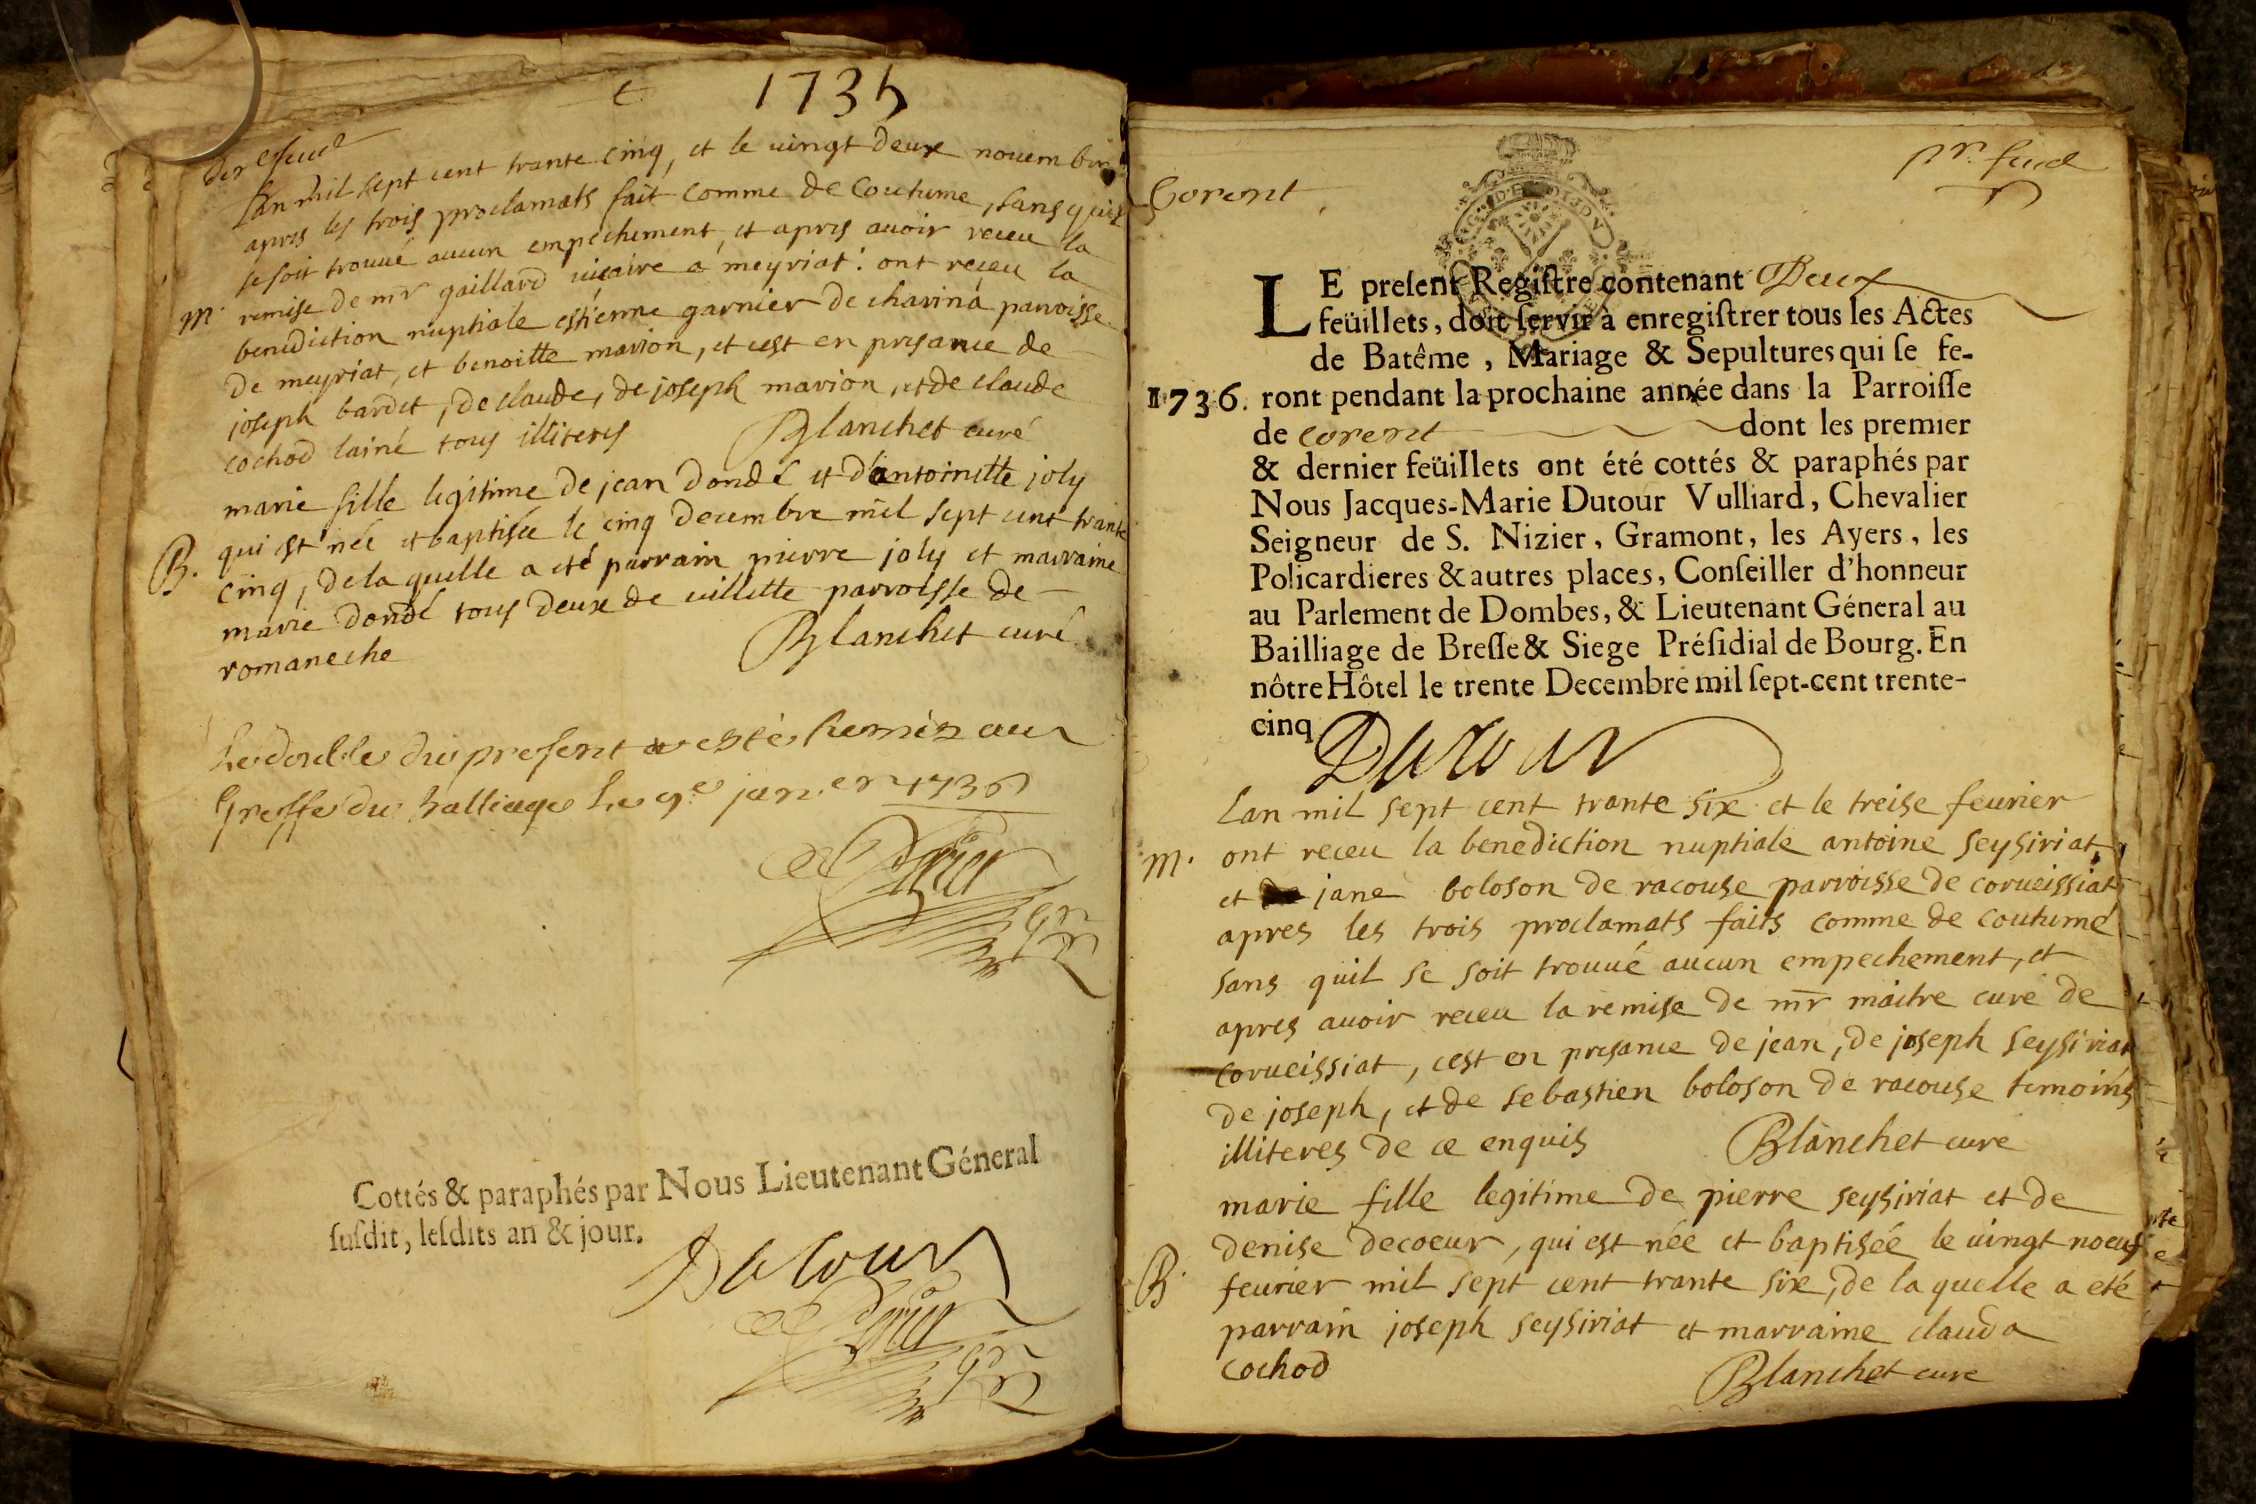 1735
der feuil
Lan mil sept cent trante cinq, et le vingt deux novembre
apres les trois proclamats fait comme de coutume, sans quil
se soit trouué aucun empechement, et apres auoir receu la
remise de mr gaillard vicaire a meyriat: ont receu la
M.
benediction nuptiale estienne garnier de charinà parroisse
de meyriat, et benoitte marion, et cest en presance de
joseph bardet, de claude, de joseph marion, et de claude
cochod lainé tous illiteres Blanchet curé
marie fille legitime de jean dondé et dantoinette joly
qui est née et baptisée le cinq decembre mil sept cent trante
B.
cinq, de la quelle a eté parrain pierre joly et marraine
marie dondé tous deux de villette parroisse de
romaneche Blanchet curé
Le double du present a esté remis au
Greffe du balliage le 9e janer 1736
Cottés & paraphés par Nous Lieutenant Géneral
suſdit, leſdits an & jour.
Dutour
pr. feuil
Corent
LE preſent Regiſtre contenant Deux
feüillets, doit ſervir à enregiſtrer tous les Actes
de Batême, Mariage & Sepultures qui ſe fe-
1736. ront pendant la prochaine année dans la Parroiſſe
de Corent dont les premier
& dernier feüillets ont été cottés & paraphés par
Nous Jacques-Marie Dutour Vulliard, Chevalier
Seigneur de S. Nizier, Gramont, les Ayers, les
Policardieres & autres places, Conſeiller d'honneur
au Parlement de Dombes, & Lieutenant Géneral au
Bailliage de Breſſe & Siege Préſidial de Bourg. En
nôtre Hôtel le trente Decembre mil ſept-cent trente-
cinq
Dutour
Lan mil sept cent trante six et le treise feurier
M. ont receu la benediction nuptiale antoine seysiriat,
et jane boloson de racouse parroisse de corueissiat
apres les trois proclamats faits comme de coutume
sans quil se soit trouué aucun empechement, et
apres auoir receu la remise de mr maitre curé de
corueissiat, cest en presance de jean, de joseph seysiriat
de joseph, et de sebastien boloson de racouse temoins
illiteres de ce enquis Blanchet curé
marie fille legitime de pierre seysiriat et de
denise decoeur, qui est née et baptisée le vingt noeuf
B. feurier mil sept cent trante six, de la quelle a eté
parrain joseph seysiriat et marraine clauda
cochod Blanchet curé